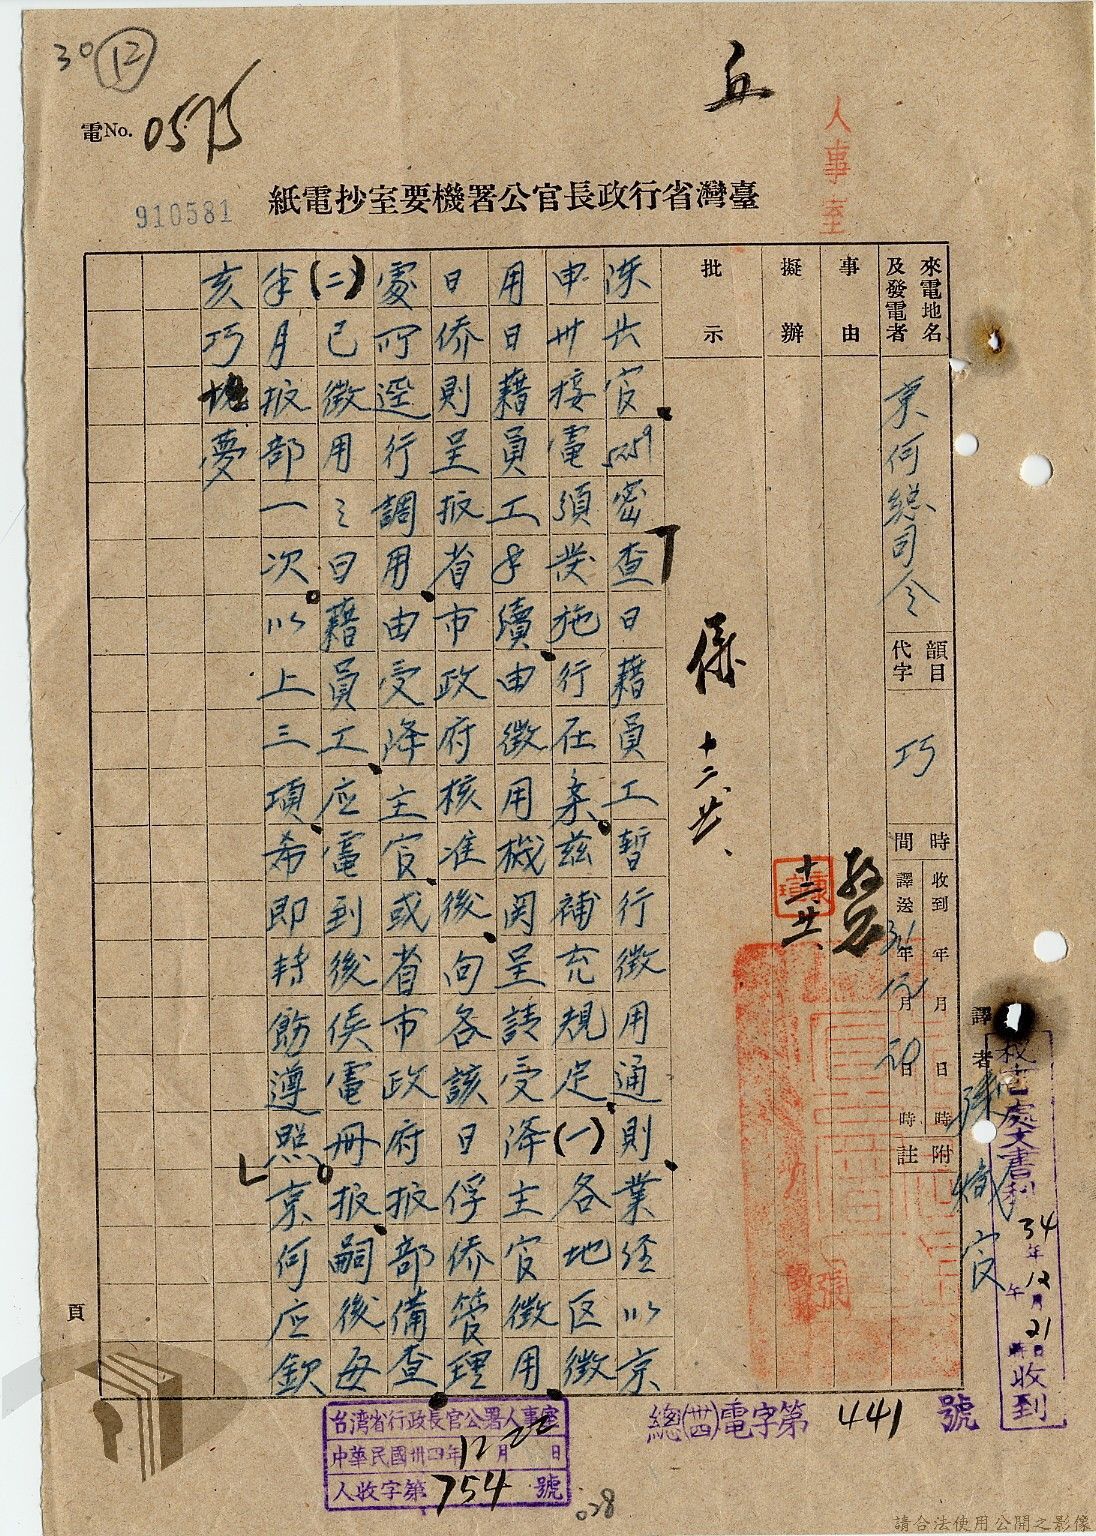 30 12
丘
人事室
電No. 0575
910581
臺灣省行政長官公署機要室抄電紙
來電地名及發電者
京何總司令
韻目代字
巧
時間
收到 年 月 日 時
譯送 34年12月20日 時
附註
事由
擬辦
批示
十二廿
十二、廿、
譯者
陳兵官5259密查日藉員工暫行徵用通則業经以京
申卅接電須發施行在案茲補充規定(一)各地区徵
用日藉員工手續由徵用機関呈請受降主官徵用
日侨則呈报省市政府核准後向各該日俘侨管理
處所逕行調用由受降主官或省市政府报部備查
(二)已徵用之日藉員工应電到後俟電冊报嗣後每
半月报部一次以上三項希即轉飭遵照京何应欽
亥巧 夢
頁
秘書處文書科
34年12月21日 午 時收到
總(卅四)電字第441號
台湾省行政長官公署人事室
中華民國卅四年12月22日
人收字第754號
028
請合法使用公開之影像